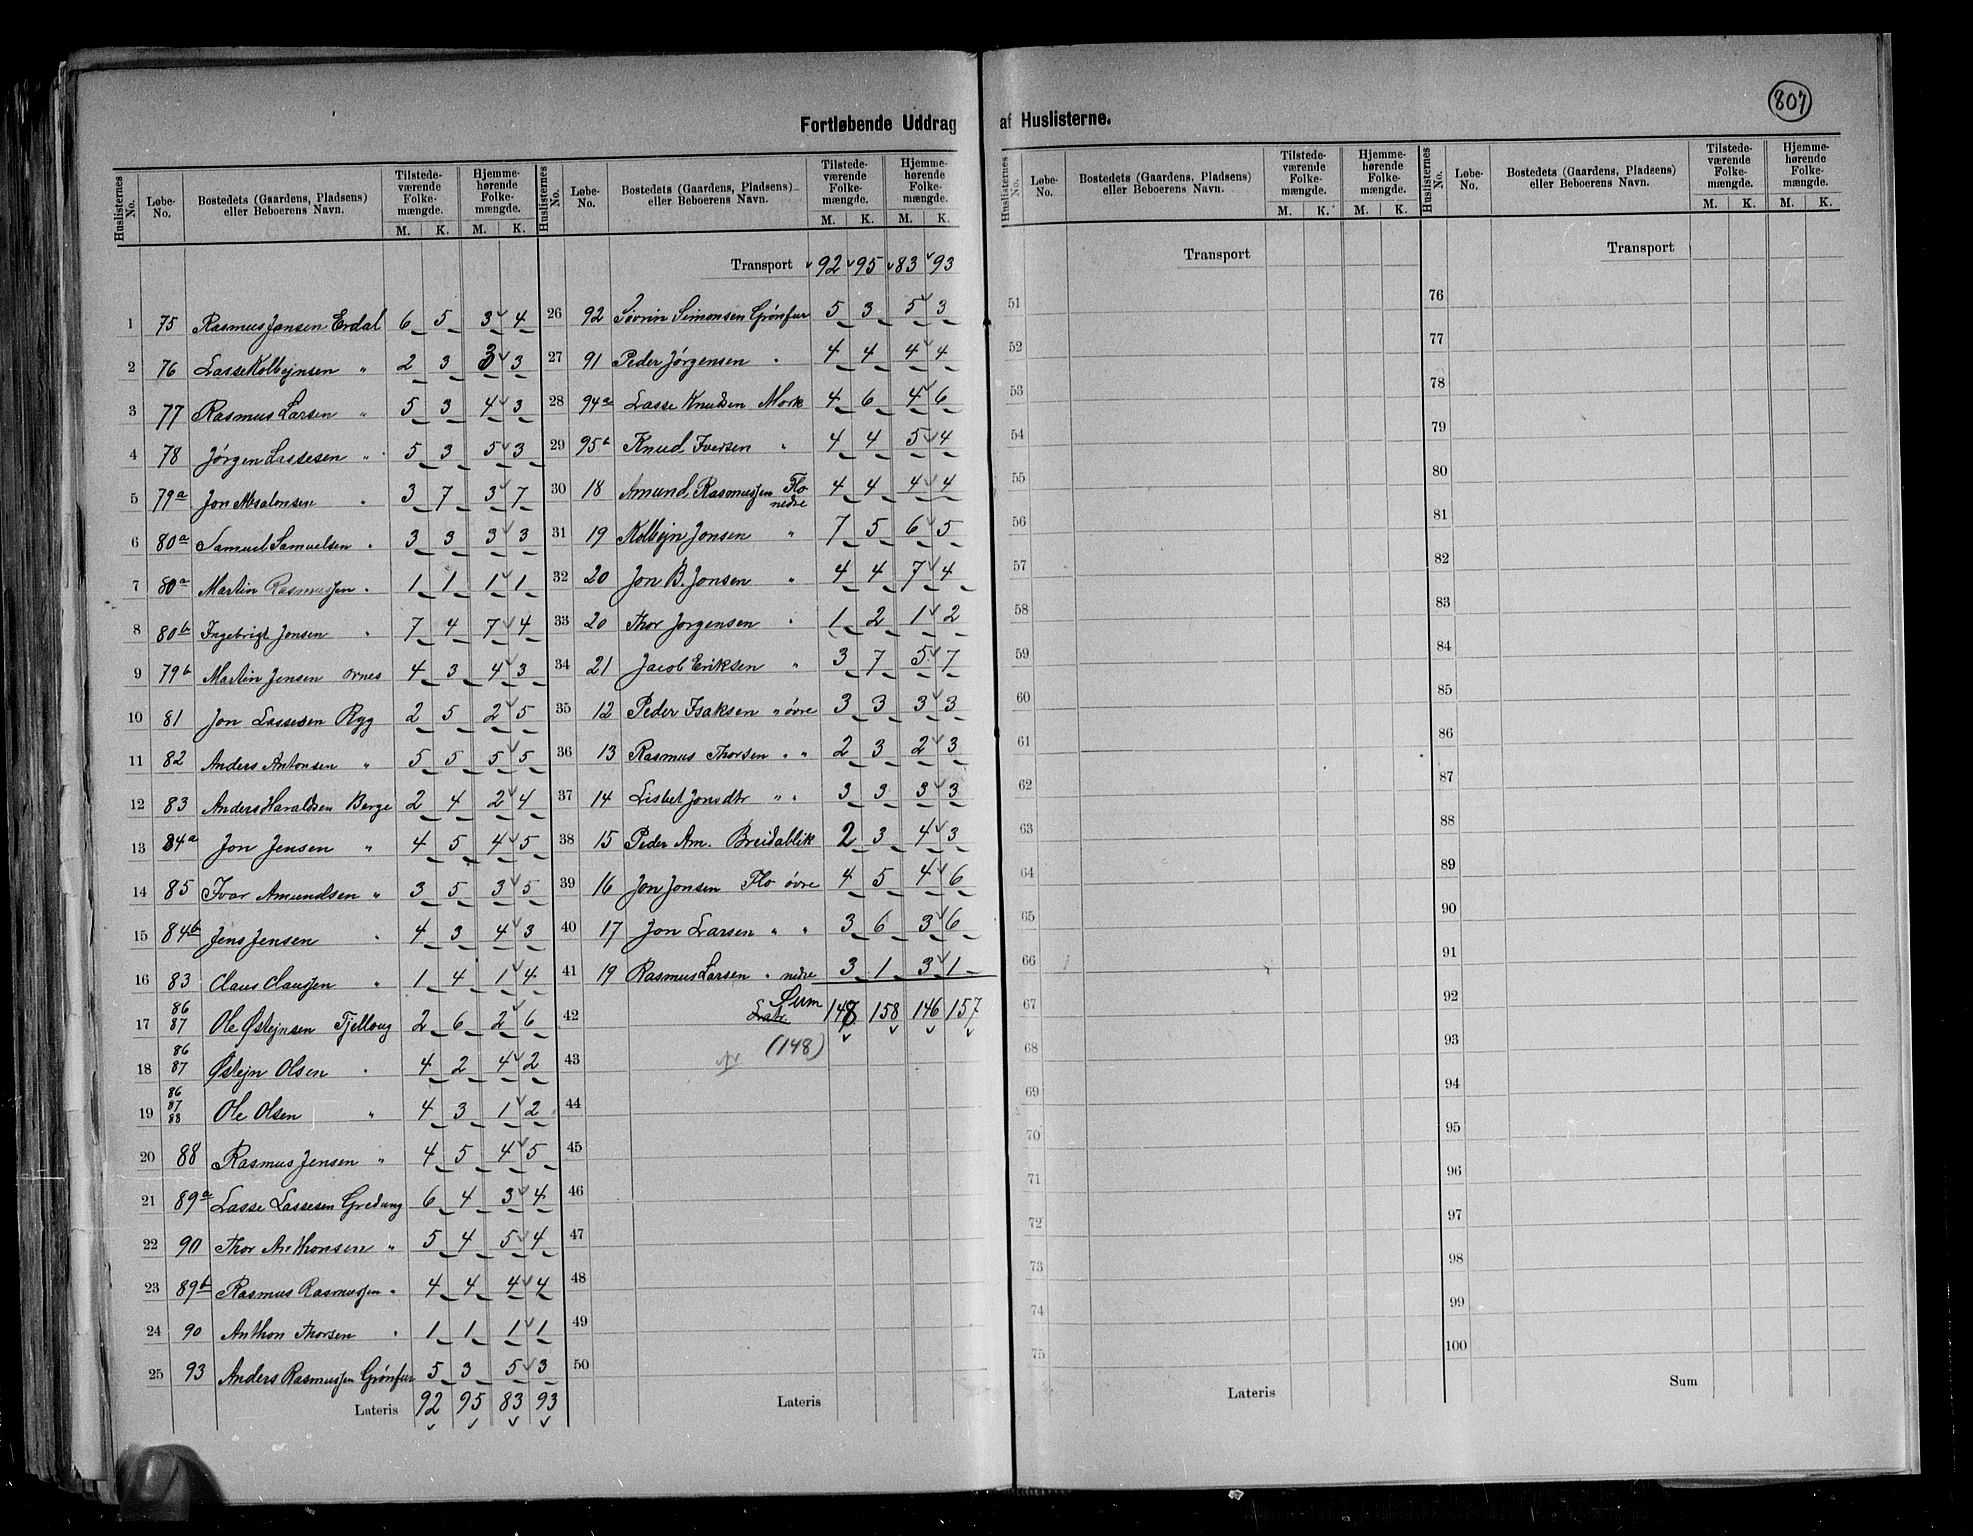 807
Fortløbende Uddrag af Huslisterne.
Huslisternes No. Løbe-No. Bostedets (Gaardens, Pladsens) eller Beboerens Navn. Tilstedeværende Folkemængde. M. K. Hjemmehørende Folkemængde. M. K.
1 75 Rasmus Jensen Erdal 6 5 3 4
2 76 Lasse Kolbejnsen " 2 3 3 3
3 77 Rasmus Larsen " 5 3 4 3
4 78 Jørgen Lassesen " 5 3 5 3
5 79a Jon Absalonsen " 3 7 3 7
6 80a Samuel Samuelsen " 3 3 3 3
7 80a Martin Rasmussen " 1 1 1 1
8 80b Ingebrigt Jonsen " 7 4 7 4
9 79b Martin Jensen Ornes 4 3 4 3
10 81 Jon Lassesen Ryg 2 5 2 5
11 82 Anders Antonsen " 5 5 5 5
12 83 Anders Haraldsen Berge 2 4 2 4
13 84a Jon Jensen " 4 5 4 5
14 85 Ivar Amundsen " 3 5 3 5
15 84b Jens Jensen " 4 3 4 3
16 83 Claus Claussen " 1 4 1 4
17 86 87 Ole Østejnsen Tjellaug 2 6 2 6
18 86 87 Østejn Olsen " 4 2 4 2
19 86 87 88 Ole Olsen " 4 3 1 2
20 88 Rasmus Jensen " 4 5 4 5
21 89a Lasse Lassesen Gredung 6 4 3 4
22 90 Thor Anthonsen " 5 4 5 4
23 89b Rasmus Rasmussen " 4 4 4 4
24 90 Anthon Thorsen " 1 1 1 1
25 93 Anders Rasmussen Grønfur 5 3 5 3
Lateris 92 95 83 93
Huslisternes No. Løbe-No. Bostedets (Gaardens, Pladsens) eller Beboerens Navn. Tilstedeværende Folkemængde. M. K. Hjemmehørende Folkemængde. M. K.
Transport 92 95 83 93
26 92 Søvrin Simonsen Grønfur 5 3 5 3
27 91 Peder Jørgensen " 4 4 4 4
28 94a Lasse Knudsen Mork 4 6 4 6
29 95b Knud Iversen " 4 4 5 4
30 18 Amund Rasmussen Flo nedre 4 4 4 4
31 19 Kolbejn Jonsen " 7 5 6 5
32 20 Jon B. Jonsen " 4 4 7 4
33 20 Thor Jørgensen " 1 2 1 2
34 21 Jacob Eriksen " 3 7 5 7
35 12 Peder Isaksen " øvre 3 3 3 3
36 13 Rasmus Thorsen " " 2 3 2 3
37 14 Lisbet Jonsdtr " " 3 3 3 3
38 15 Peder Am. Breidablik 2 3 4 3
39 16 Jon Jonsen Flo øvre 4 5 4 6
40 17 Jon Larsen " " 3 6 3 6
41 19 Rasmus Larsen " nedre 3 1 3 1
42 Sum 148 158 146 157
43 (148)
44
45
46
47
48
49
50
Lateris
Huslisternes No. Løbe-No. Bostedets (Gaardens, Pladsens) eller Beboerens Navn. Tilstedeværende Folkemængde. M. K. Hjemmehørende Folkemængde. M. K.
Transport
51
52
53
54
55
56
57
58
59
60
61
62
63
64
65
66
67
68
69
70
71
72
73
74
75
Lateris
Huslisternes No. Løbe-No. Bostedets (Gaardens, Pladsens) eller Beboerens Navn. Tilstedeværende Folkemængde. M. K. Hjemmehørende Folkemængde. M. K.
Transport
76
77
78
79
80
81
82
83
84
85
86
87
88
89
90
91
92
93
94
95
96
97
98
99
100
Sum